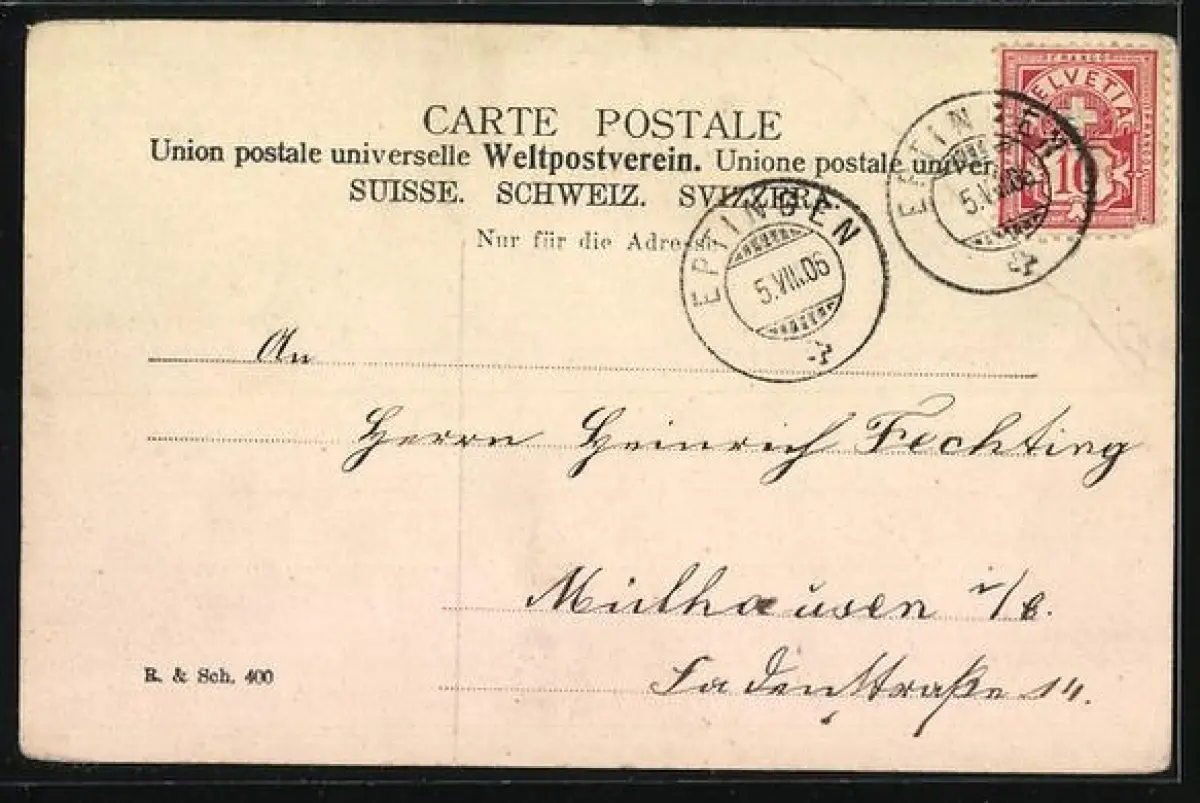 CARTE POSTALE
Union postale universelle Weltpostverein. Unione postale univer
SUISSE. SCHWEIZ. SVIZZERA.
Nur für die Adresse
FRANCO
HELVETIA
FRANCO
10
EPTINGEN
5.VII.06
EPTINGEN
5.VII.06
An
Herrn Heinrich Fechting
Mülhausen i/E.
Fadenstraße
R. & Sch. 400